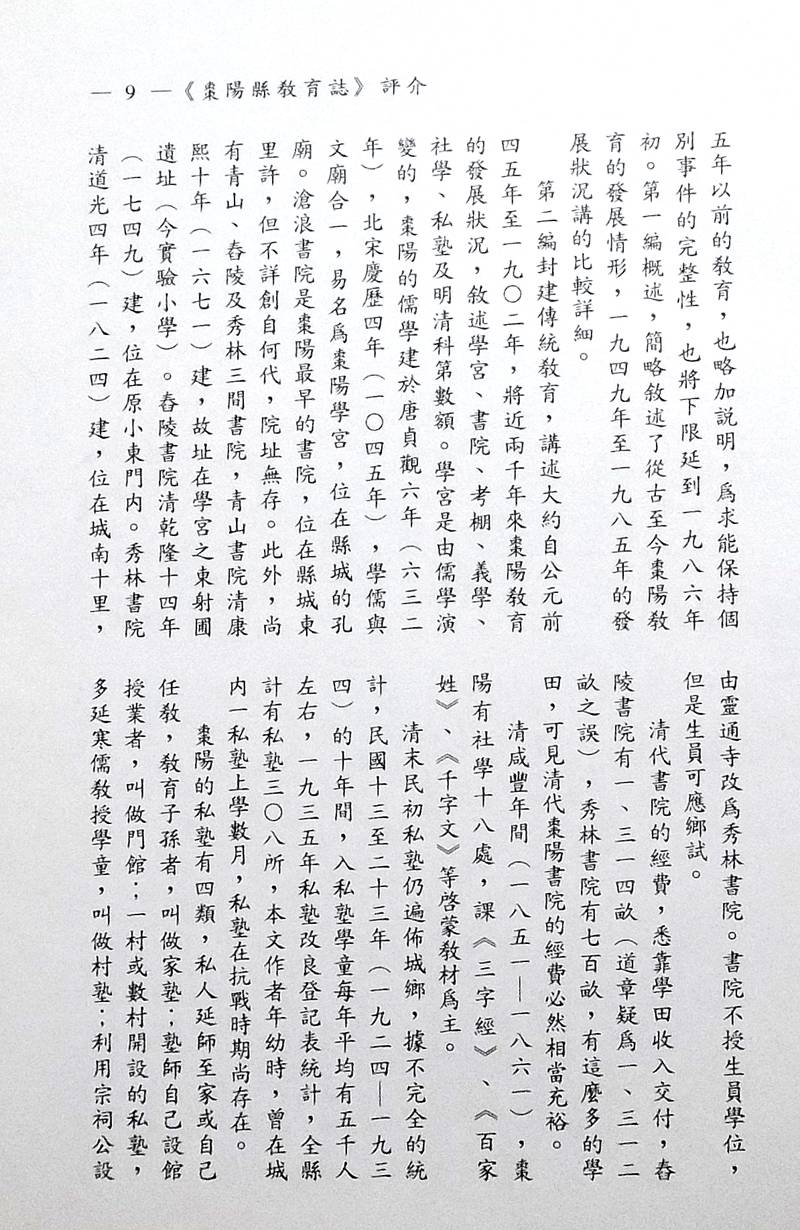 — 9 —《棗陽縣教育誌》評介
五年以前的教育，也略加説明，爲求能保持個
別事件的完整性，也將下限延到一九八六年
初。第一編概述，簡略敘述了從古至今棗陽教
育的發展情形，一九四九年至一九八五年的發
展狀況講的比較詳細。
第二編封建傳統教育，講述大約自公元前
四五年至一九〇二年，將近兩千年來棗陽教育
的發展狀況，敘述學宮、書院、考棚、義學、
社學、私塾及明清科第數額。學宮是由儒學演
變的，棗陽的儒學建於唐貞觀六年（六三二
年），北宋慶歷四年（一〇四五年），學儒與
文廟合一，易名爲棗陽學宮，位在縣城的孔
廟。滄浪書院是棗陽最早的書院，位在縣城東
里許，但不詳創自何代，院址無存。此外，尚
有青山、舂陵及秀林三間書院，青山書院清康
熙十年（一六七一）建，故址在學宮之東射圃
遺址（今實驗小學）。舂陵書院清乾隆十四年
（一七四九）建，位在原小東門内。秀林書院
清道光四年（一八二四）建，位在城南十里，
由靈通寺改爲秀林書院。書院不授生員學位，
但是生員可應鄉試。
清代書院的經費，悉靠學田收入交付，舂
陵書院有一、三一四畝（道章疑爲一、三一二
畝之誤），秀林書院有七百畝，有這麼多的學
田，可見清代棗陽書院的經費必然相當充裕。
清咸豐年間（一八五一—一八六一），棗
陽有社學十八處，課《三字經》、《百家
姓》、《千字文》等啓蒙教材爲主。
清末民初私塾仍遍佈城鄉，據不完全的統
計，民國十三至二十三年（一九二四—一九三
四）的十年間，入私塾學童每年平均有五千人
左右，一九三五年私塾改良登記表統計，全縣
計有私塾三〇八所，本文作者年幼時，曾在城
内一私塾上學數月，私塾在抗戰時期尚存在。
棗陽的私塾有四類，私人延師至家或自己
任教，教育子孫者，叫做家塾；塾師自己設館
授業者，叫做門館；一村或數村開設的私塾，
多延寒儒教授學童，叫做村塾；利用宗祠公設